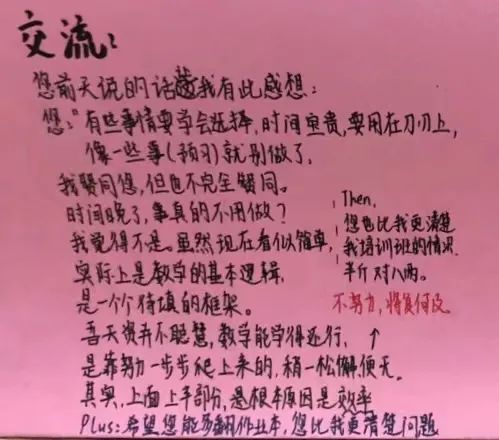 交流：
您前天说的话让我有此感想：
您："有些事情要学会选择，时间宝贵，要用在刀刃上，
像一些事(预习)就别做了，
我赞同您，但也不完全赞同。
时间晚了，事真的不用做？
我觉得不是。虽然现在看似简单，
实际上是数学的基本逻辑，
是一个个待填的框架。
吾天资并不聪慧，数学能学得还行，
是靠努力一步步爬上来的，稍一松懈便无。
其实，上面上半部分，总根本原因是效率
Plus：希望您能多翻作业本，您比我更清楚问题
Then，
您也比我更清楚
我培训班的情况
半斤对八两。
不努力，将复何及
↑